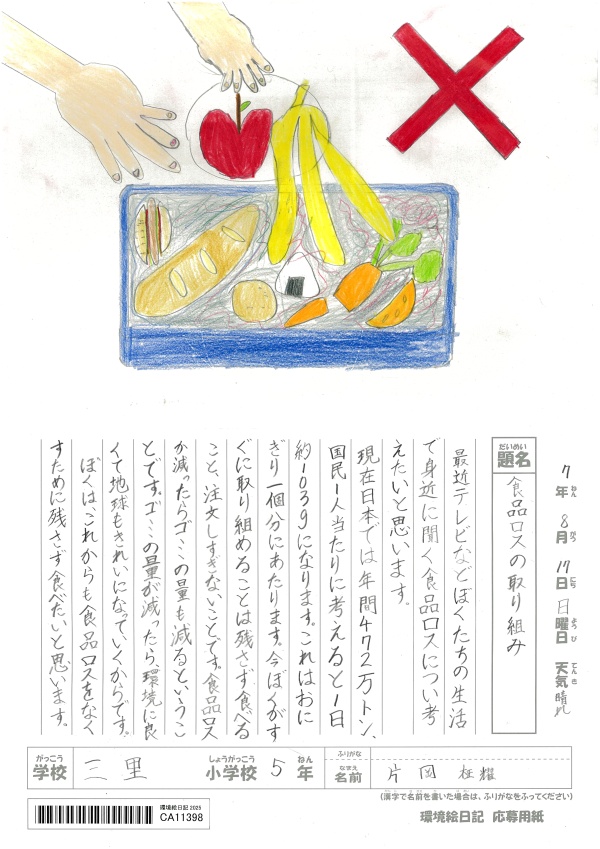 7年 8月 17日 日曜日 天気 晴れ
ねん がつ にち ようび てんき
だいめい
題名
食品ロスの取り組み
最近テレビなどぼくたちの生活
で身近に聞く食品ロスについ考
えたいと思います。
現在日本では年間472万トン、
国民1人当たりに考えると1日
約103gになります。これはおに
ぎり一個分にあたります。今ぼくがす
ぐに取り組めることは残さず食べる
こと、注文しすぎないことです。食品ロス
が減ったらゴミの量も減るというこ
とです。ゴミの量が減ったら、環境に良
くて地球もきれいになっていくからです。
ぼくは、これからも食品ロスをなく
すために残さず食べたいと思います。
がっこう
学校
三里
しょうがっこう
小学校
5
ねん
年
ふりがな
なまえ
名前
片岡
(漢字で名前を書いた場合は、ふりがなをふってください)
環境絵日記 2025
CA11398
環境絵日記 応募用紙